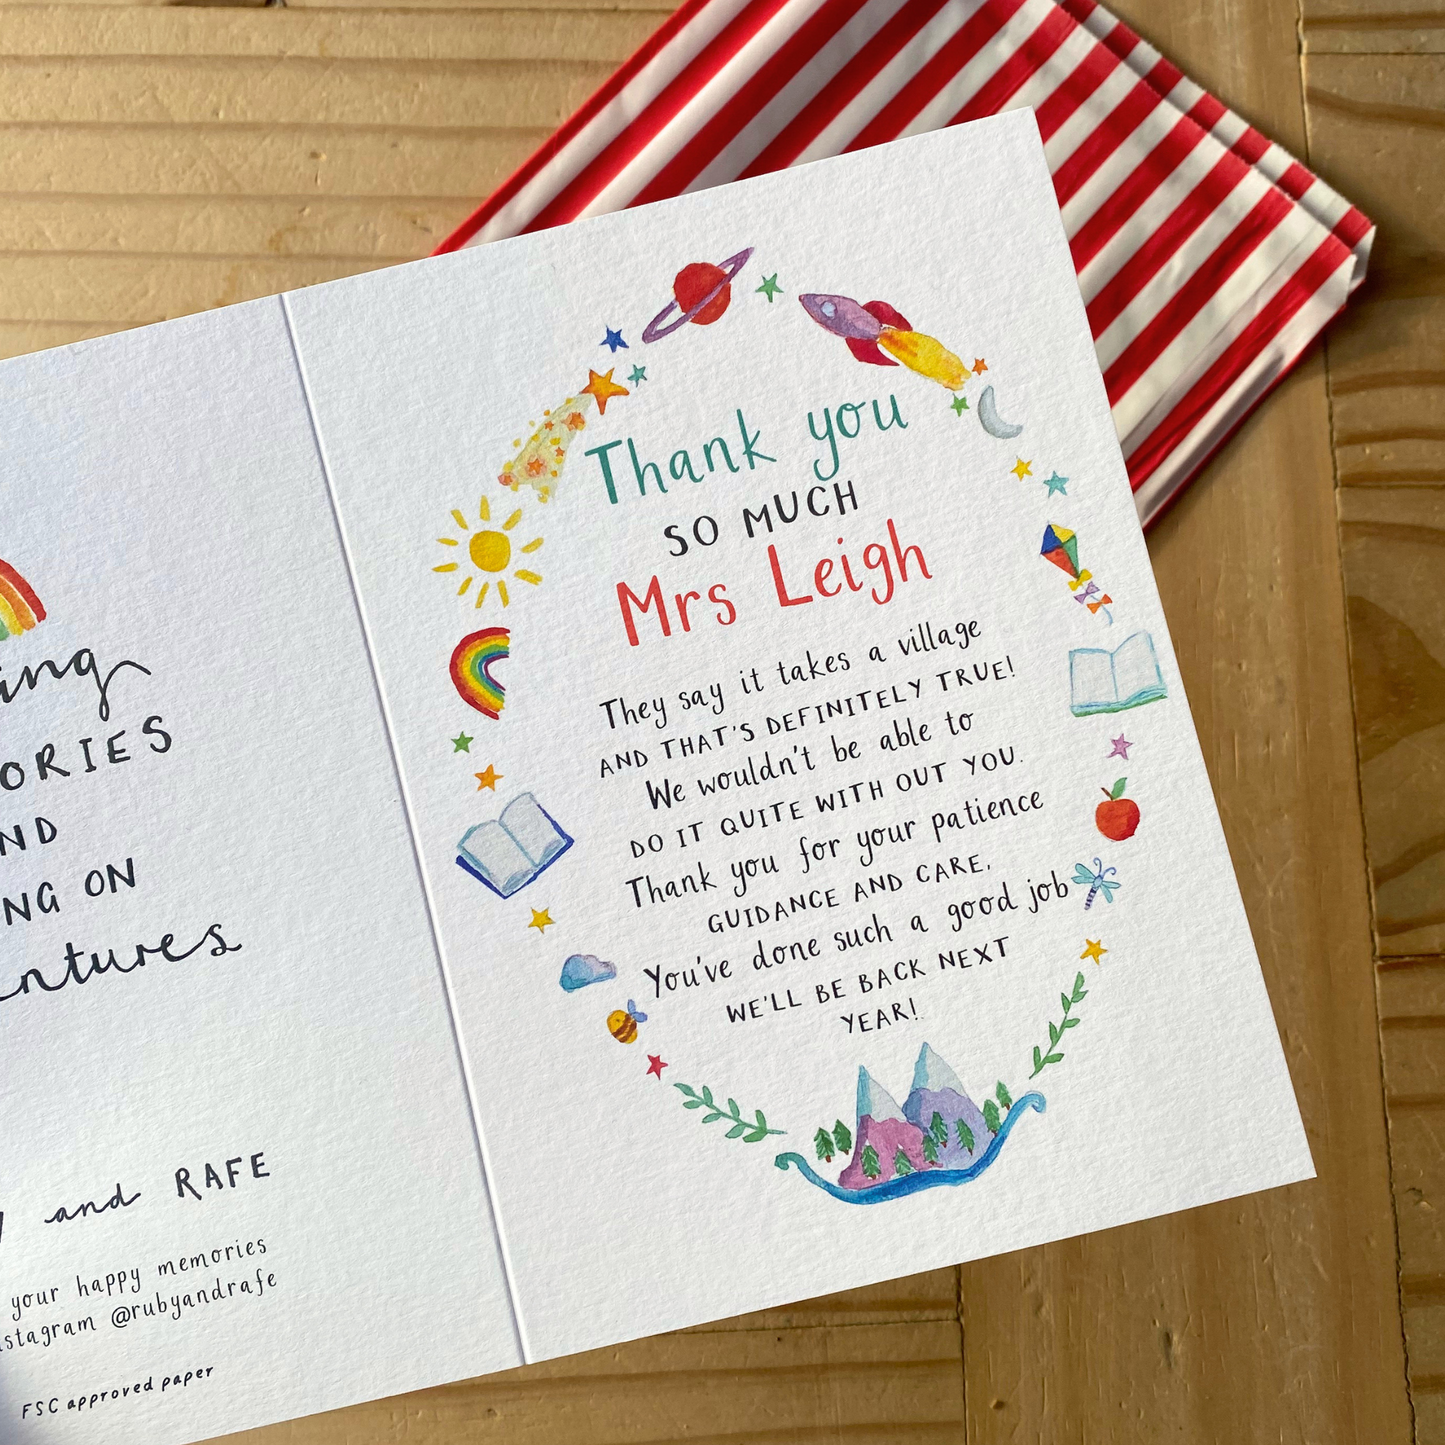 AND
ON
and RAFE
your happy memories
@rubyandrafe
FSC approved paper
Thank you
SO MUCH
Mrs Leigh
They say it takes a village
AND THAT'S DEFINITELY TRUE!
We wouldn't be able to
DO IT QUITE WITH OUT YOU.
Thank you for your patience
GUIDANCE AND CARE.
You've done such a good job
WE'LL BE BACK NEXT
YEAR!